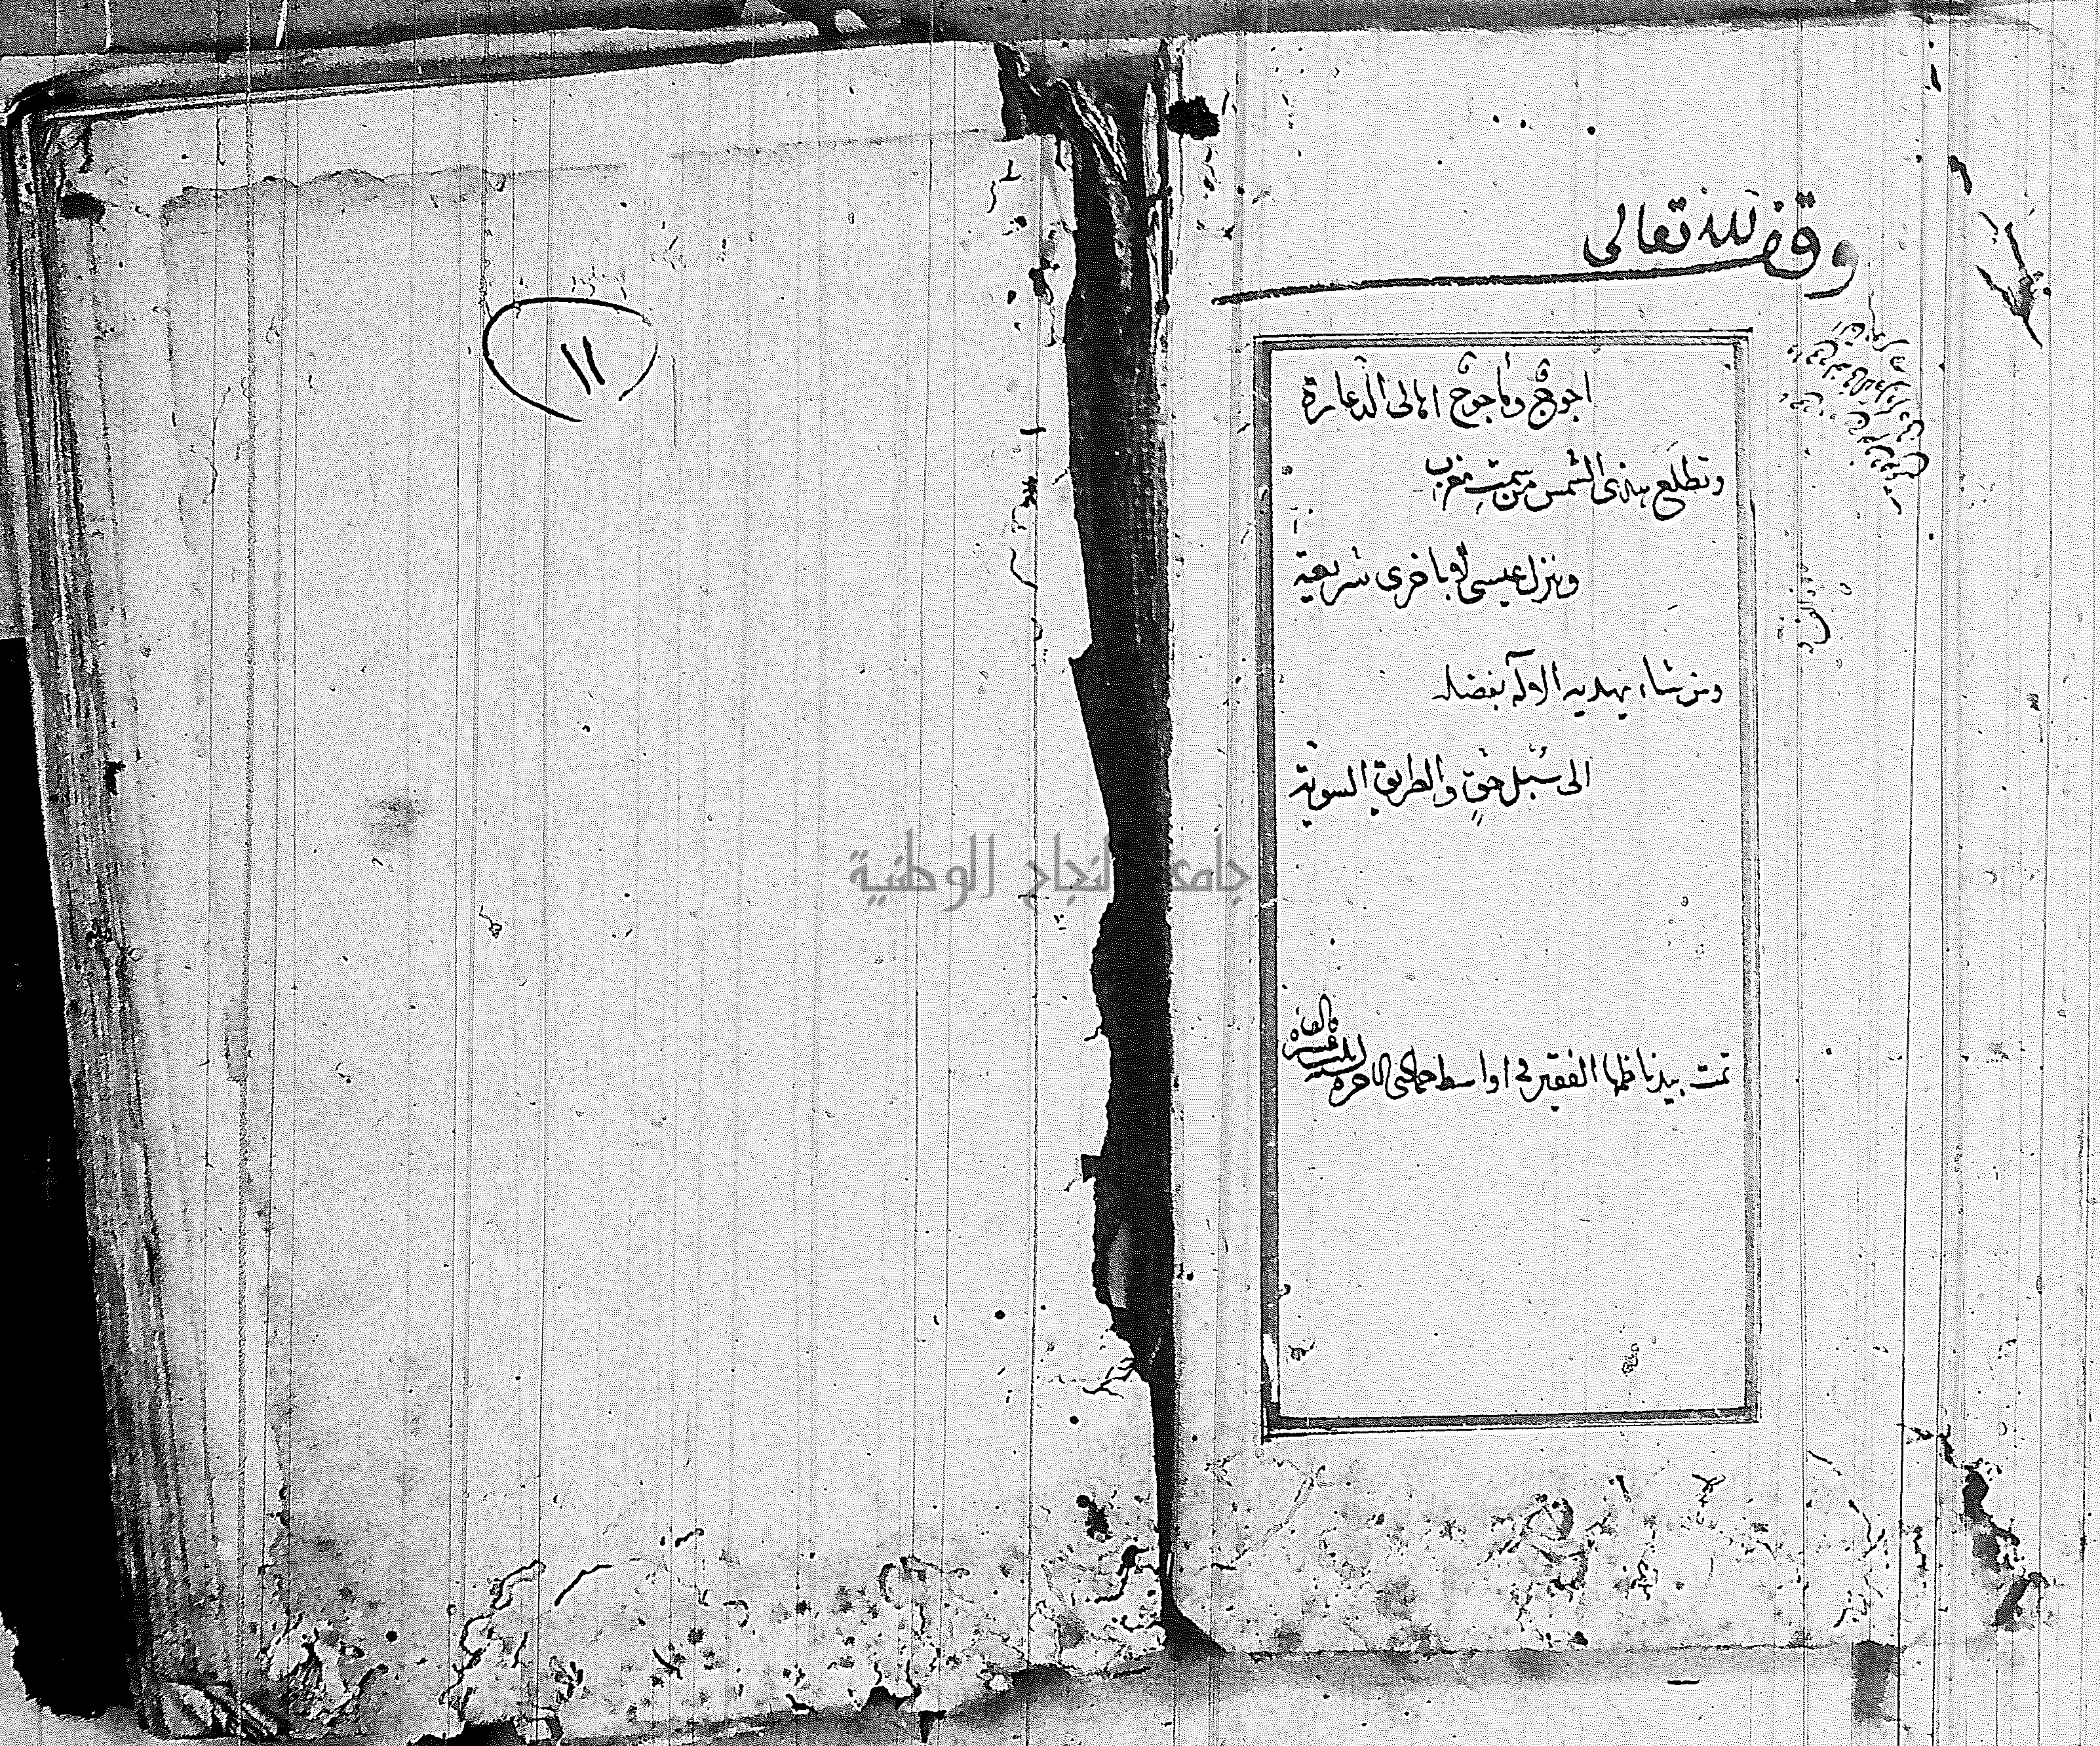 وقف لله تعالى
اجوج ومأجوج اهالى الدعارة
وتطلع هذى الشمس من سمت مغرب
وينزل عيسى لا باخرى شريعة
ومن شاء يهديه الاله بفضله
الى سبل حق والطريق السوية
تمت بيد ناظمها الفقير في اواسط جمادى الاخرة
١١
جامعة النجاح الوطنية